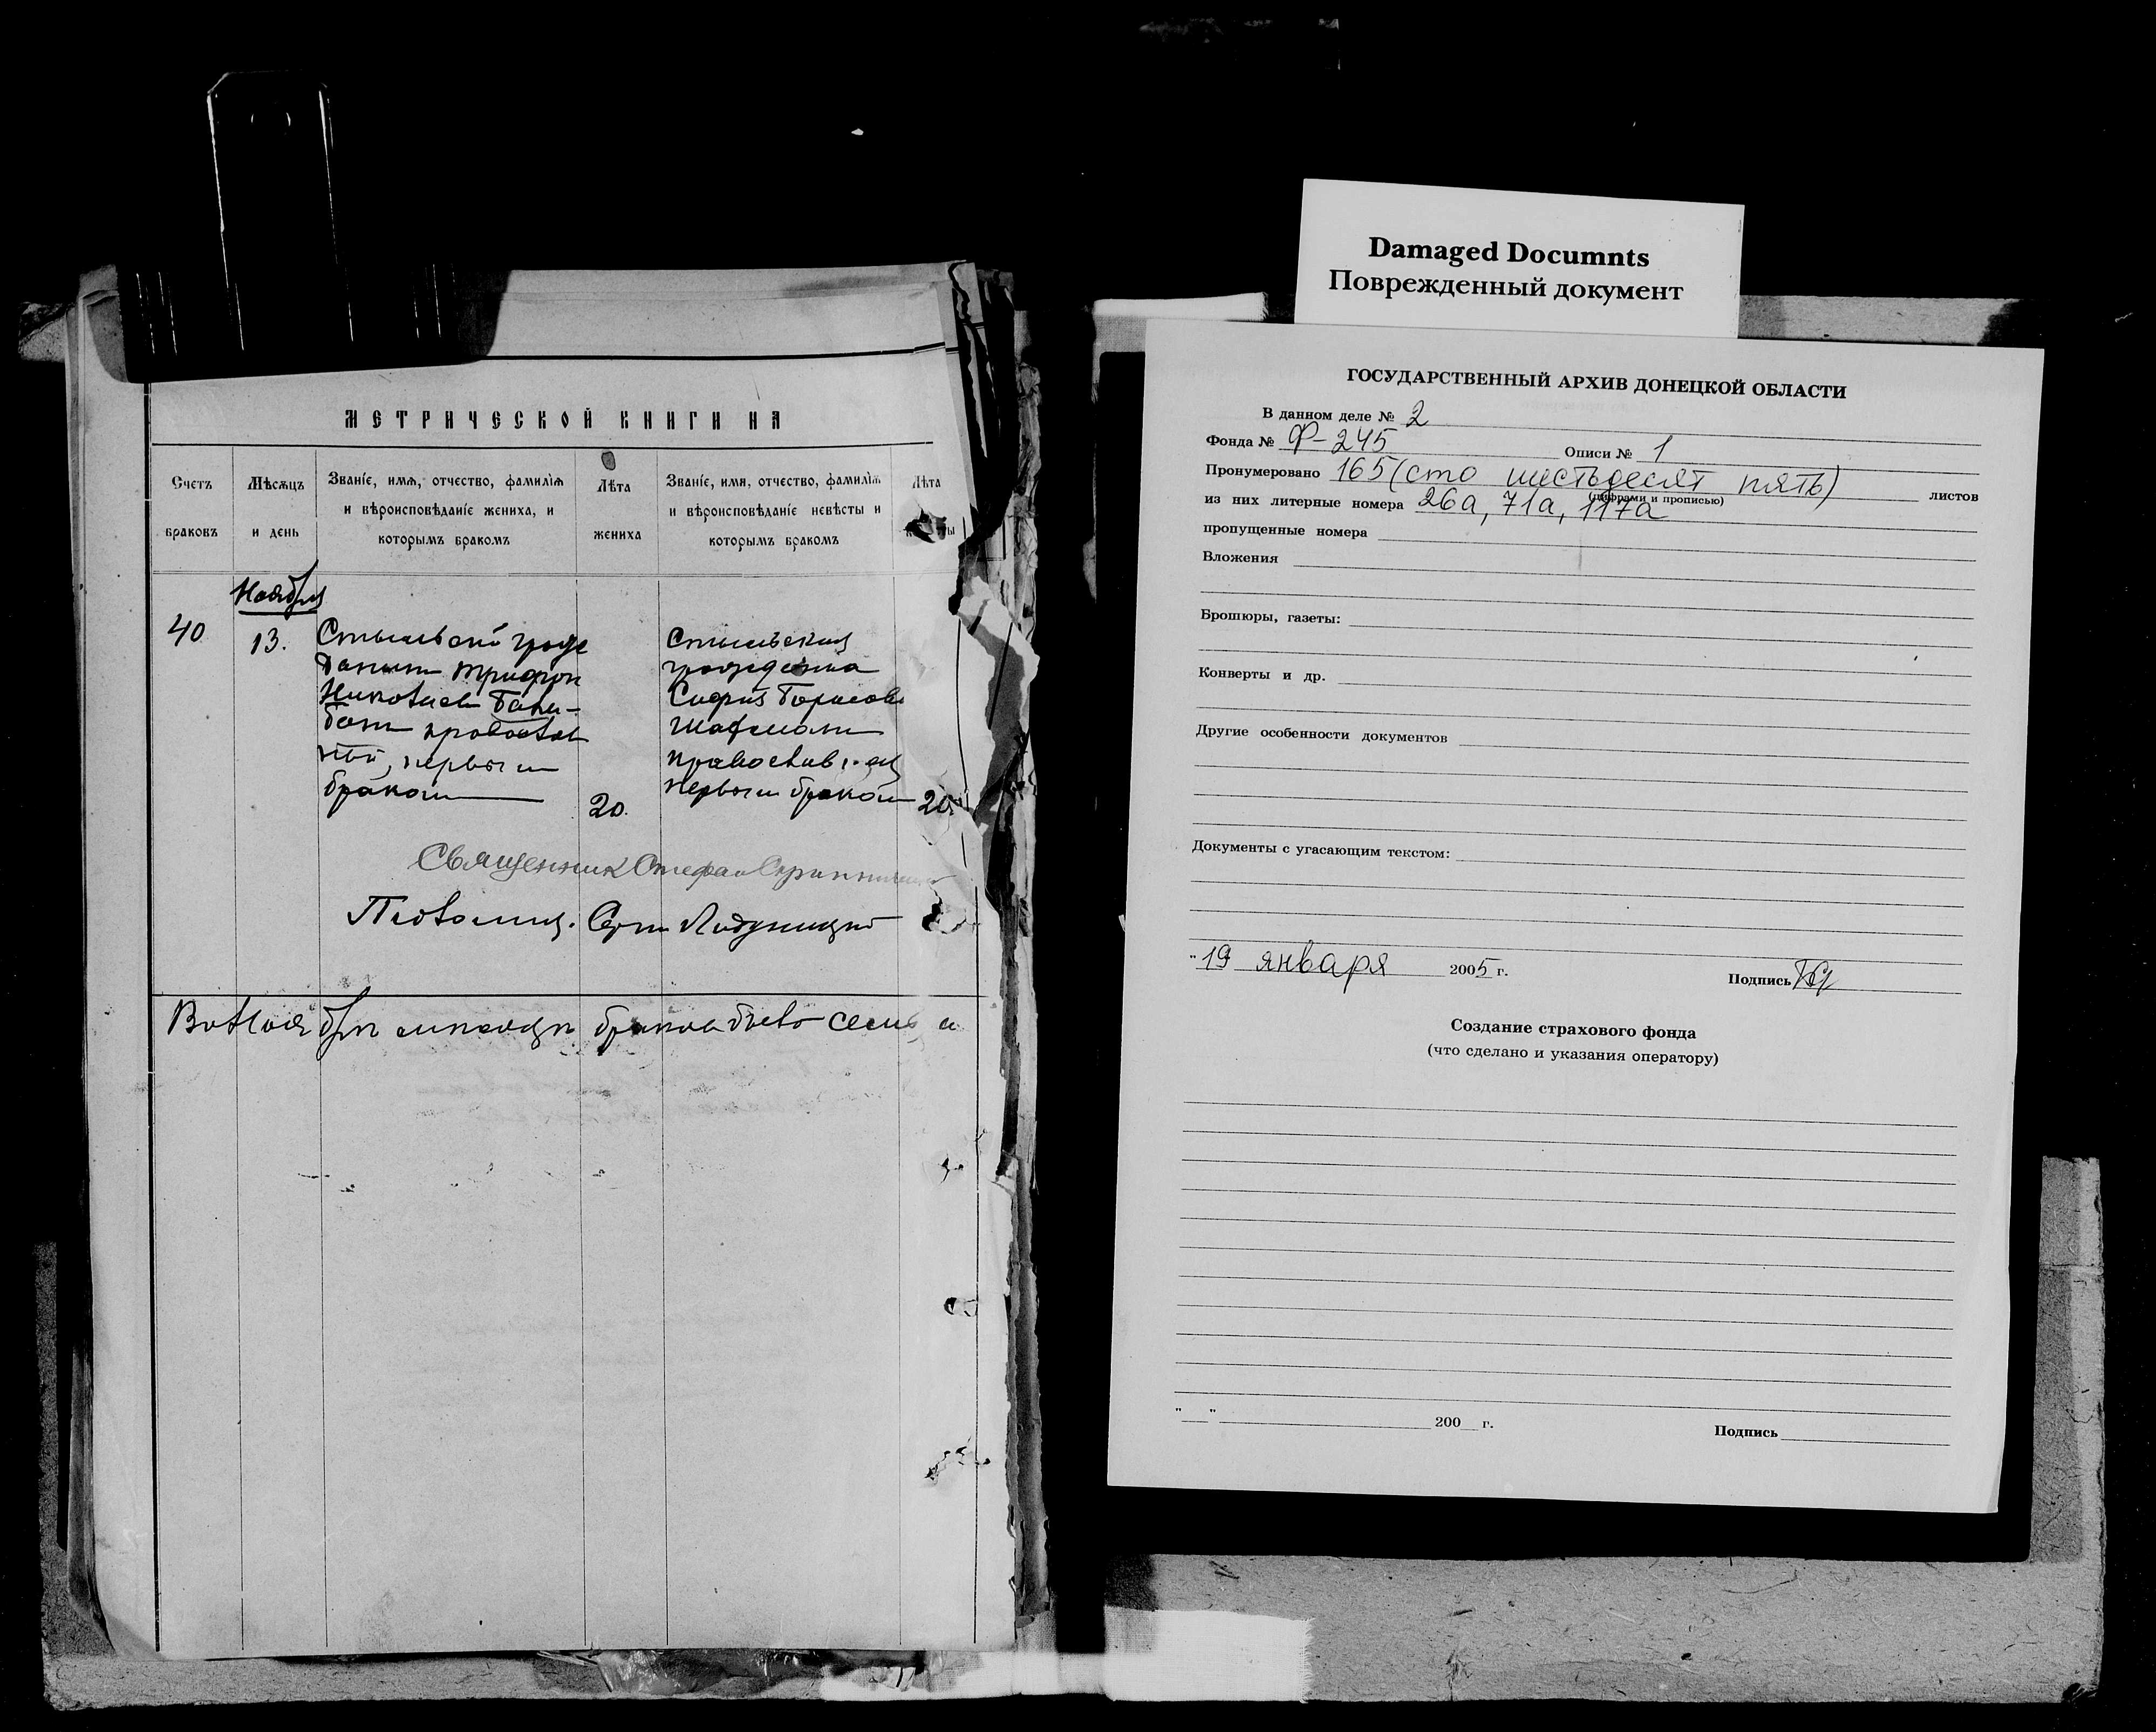 МЕТРИЧЕСКОЙ КНИГИ НА
Счетъ браковъ
Мѣсяцъ и день
Званіе, имя, отчество, фамилія
и вѣроисповѣданіе жениха, и
которымъ бракомъ
Лѣта
жениха
Званіе, имя, отчество, фамилія
и вѣроисповѣданіе невѣсты и
которымъ бракомъ
Лѣта
Ноября
40
13.
Стыльской граж
данин Трифон
Николаев
православ
ный, первым
браком
20.
Стыльская
гражданка
София Борисов
православная
первым браком
20
Священник Стефан
Псаломщ.
В Ноябре месяце браков было семь
Damaged Documnts
Поврежденный документ
ГОСУДАРСТВЕННЫЙ АРХИВ ДОНЕЦКОЙ ОБЛАСТИ
В данном деле № 2
Фонда № Ф-245 Описи № 1
Пронумеровано 165 (сто шестьдесят пять) листов
(цифрами и прописью)
из них литерные номера 26а, 71а, 117а
пропущенные номера
Вложения
Брошюры, газеты:
Конверты и др.
Другие особенности документов
Документы с угасающим текстом:
"19 января 2005 г. Подпись
Создание страхового фонда
(что сделано и указания оператору)
"__" 200__ г. Подпись